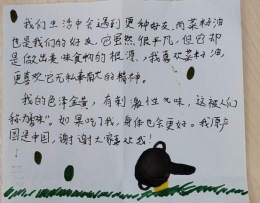 我们生活中会遇到更种好友,肉菜籽油
也是我们的好友,它虽然很平凡,但它却
是做出美味食物的根源,我喜欢菜籽油,
更喜欢它无私奉献的精神。
我的色泽金黄,有刺激性气味,这被人们
称为"辣味"。如果吃了我,身体也会更好。我原产
国是中国,谢谢大家喜欢我!